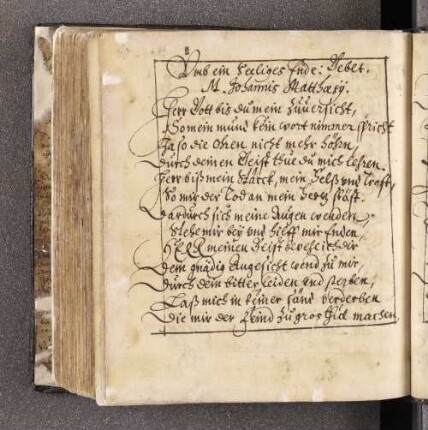 Umb ein Seeliges Ende: Gebet.
M. Johannis Matthæsÿ.
Herr Gott biß du mein Zuuersicht,
So mein mund kein wort nimmer spricht
Ja so die Ohren nicht mehr höhrn,
durch deinen Geist thue du mich lehren.
Herr biß mein Stärck, mein Felß und Krafft,
So mir der Tod an mein Hertz stöst.
Dardurch sich meine Augen wenden
Stehe mir bey und hilff mir Enden
HERR meinen Geist bevehl ich dir
Dein gnädig Angesicht wend zu mir,
durch dein bitter leiden und sterben,
Laß mich in keiner Sünd verderben
Die mir der Feind zu gros machen